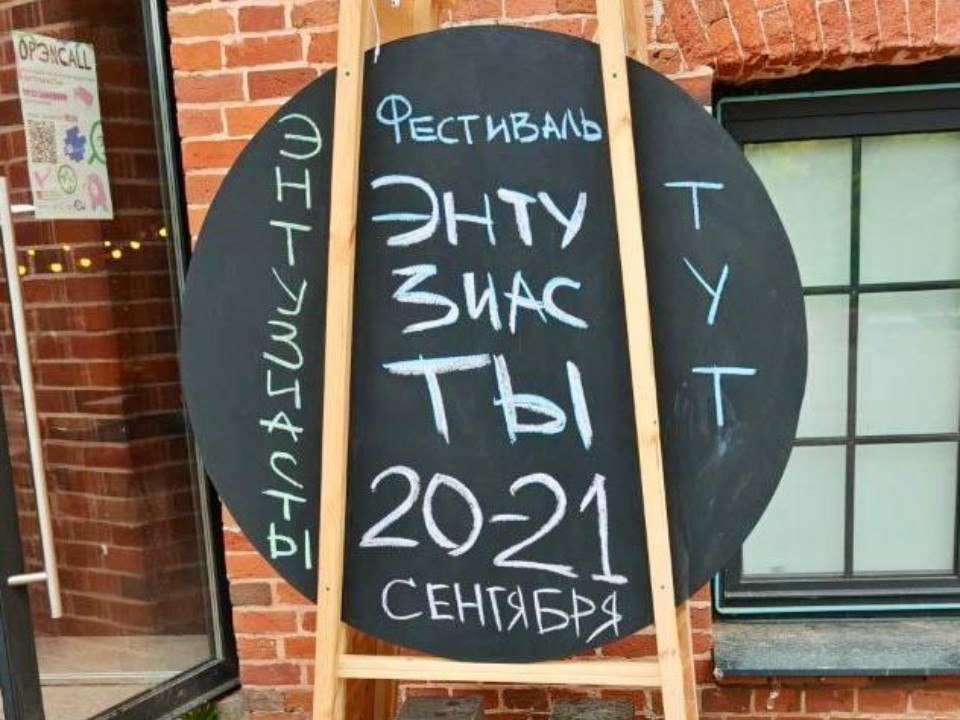 OPЭNCALL
ЭНТУЗИАСТЫ
ФЕСТИВАЛЬ
ЭНТУ
ЗИАС
ТЫ
20-21
СЕНТЯБРЯ
Т
У
Т